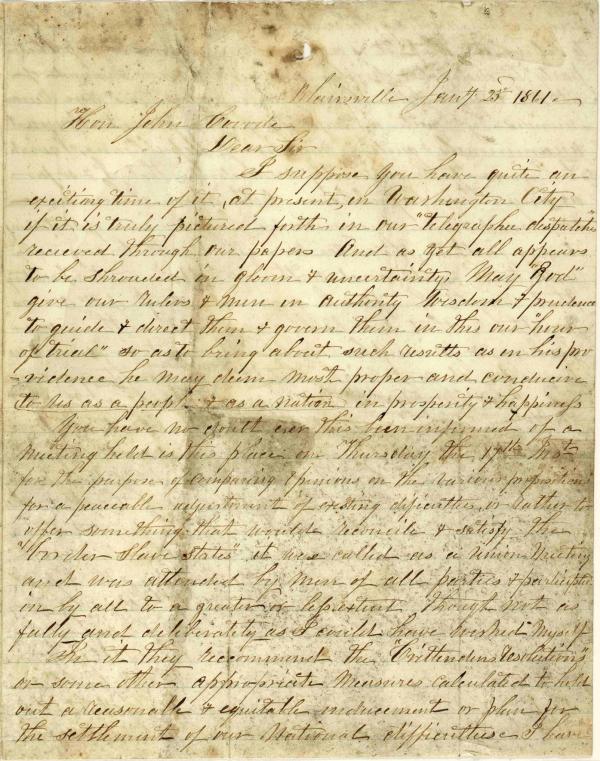 Blairsville Jany 25th 1861.
Hon John Covode
Dear Sir
I suppose you have quite an
exciting time of it, at present, in Washington City
if it is truly pictured forth in our "telegraphic dispatches
recieved through our papers And as yet all appears
to be shrouded in gloom & uncertainty May "God"
give our rulers & men in authority Wisdom & prudence
to guide & direct them & govern them in this our "hour
of trial" so as to bring about such results as in his pro
vidence he may deem most proper and conducive
to us as a people & as a nation in prosperity & happiness
You have no doubt ere this been informed of a
meeting held in this place on Thursday the 17th Inst
for the purpose of comparing opinions on the various propositions
for a peaceable adjustment of existing dificulties, or rather to
offer something that would reconcile & satisfy the
"border slave states" it was called as a Union Meeting
and was attended by men of all parties & participated
in by all to a greater or less extent though not as
fully and deliberately as I could have wished Myself
In it they recommend the "Crittenden resolutions"
or some other appropriate Measures calculated to hold
out a reasonable & equitable inducement or plan for
the settlement of our National difficulties I have